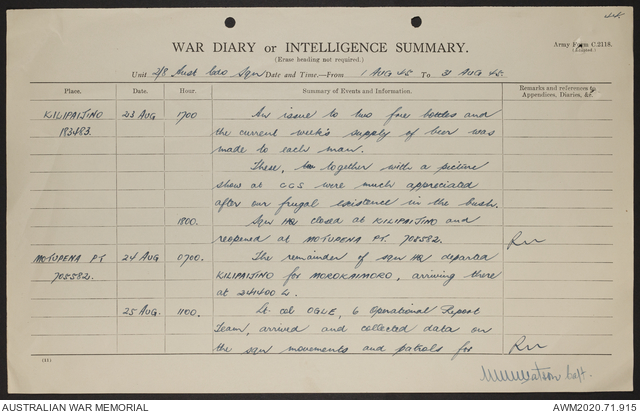 WAR DIARY or INTELLIGENCE SUMMARY.
(Erase heading not required.)
Army Form C.2118.
Unit 2/8 Aust Cdo Sqn Date and Time.—From 1 AUG 45 To 31 AUG 45.
Place. Date. Hour. Summary of Events and Information. Remarks and references to Appendices, Diaries, &c.
KILIPAIJINO 23 AUG 1700 An issue to two free bottles and
183483. the current week's supply of beer was
made to each man.
These, together with a picture
show at CCS were much appreciated
after our frugal existence in the bush.
1800. Sqn HQ closed at KILIPAIJINO and
reopened at MOTUPENA PT. 708582.
MOTUPENA PT 24 AUG 0700. The remainder of sqn HQ departed
708582. KILIPAIJINO for MOROKAIMORO, arriving there
at 241400 L.
25 AUG. 1100. Lt Col OGLE, 6 Operational Report
Team, arrived and collected data on
the sqn movements and patrols for
Capt.
AUSTRALIAN WAR MEMORIAL AWM2020.71.915